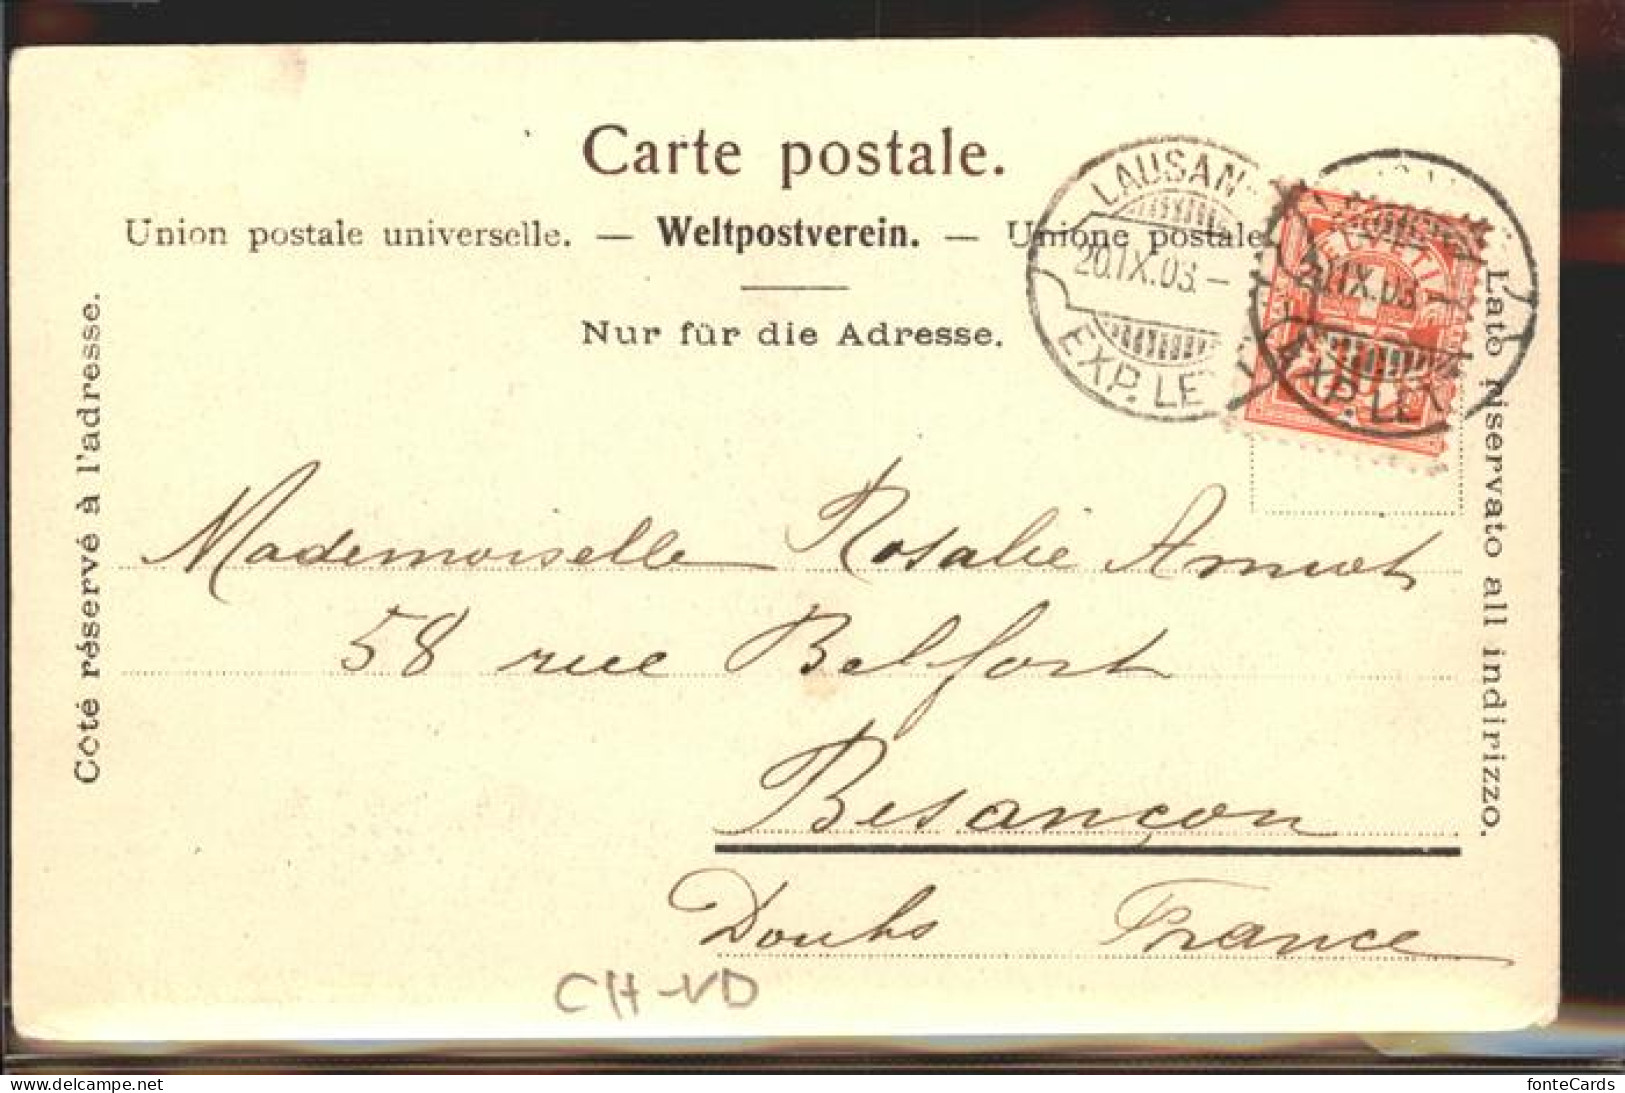 Carte postale.
Union postale universelle. — Weltpostverein. — Unione postale
Nur für die Adresse.
Côté réservé à l'adresse.
LAUSAN
20.IX.03.–
EXP. LET
20.IX.03.–
EXP. LET
HELVETIA
10
Lato riservato all indirizzo.
Mademoiselle Rosalie Amiot
58 rue Belfort
Besançon
Doubs France
CH-VD
www.delcampe.net
fonteCards